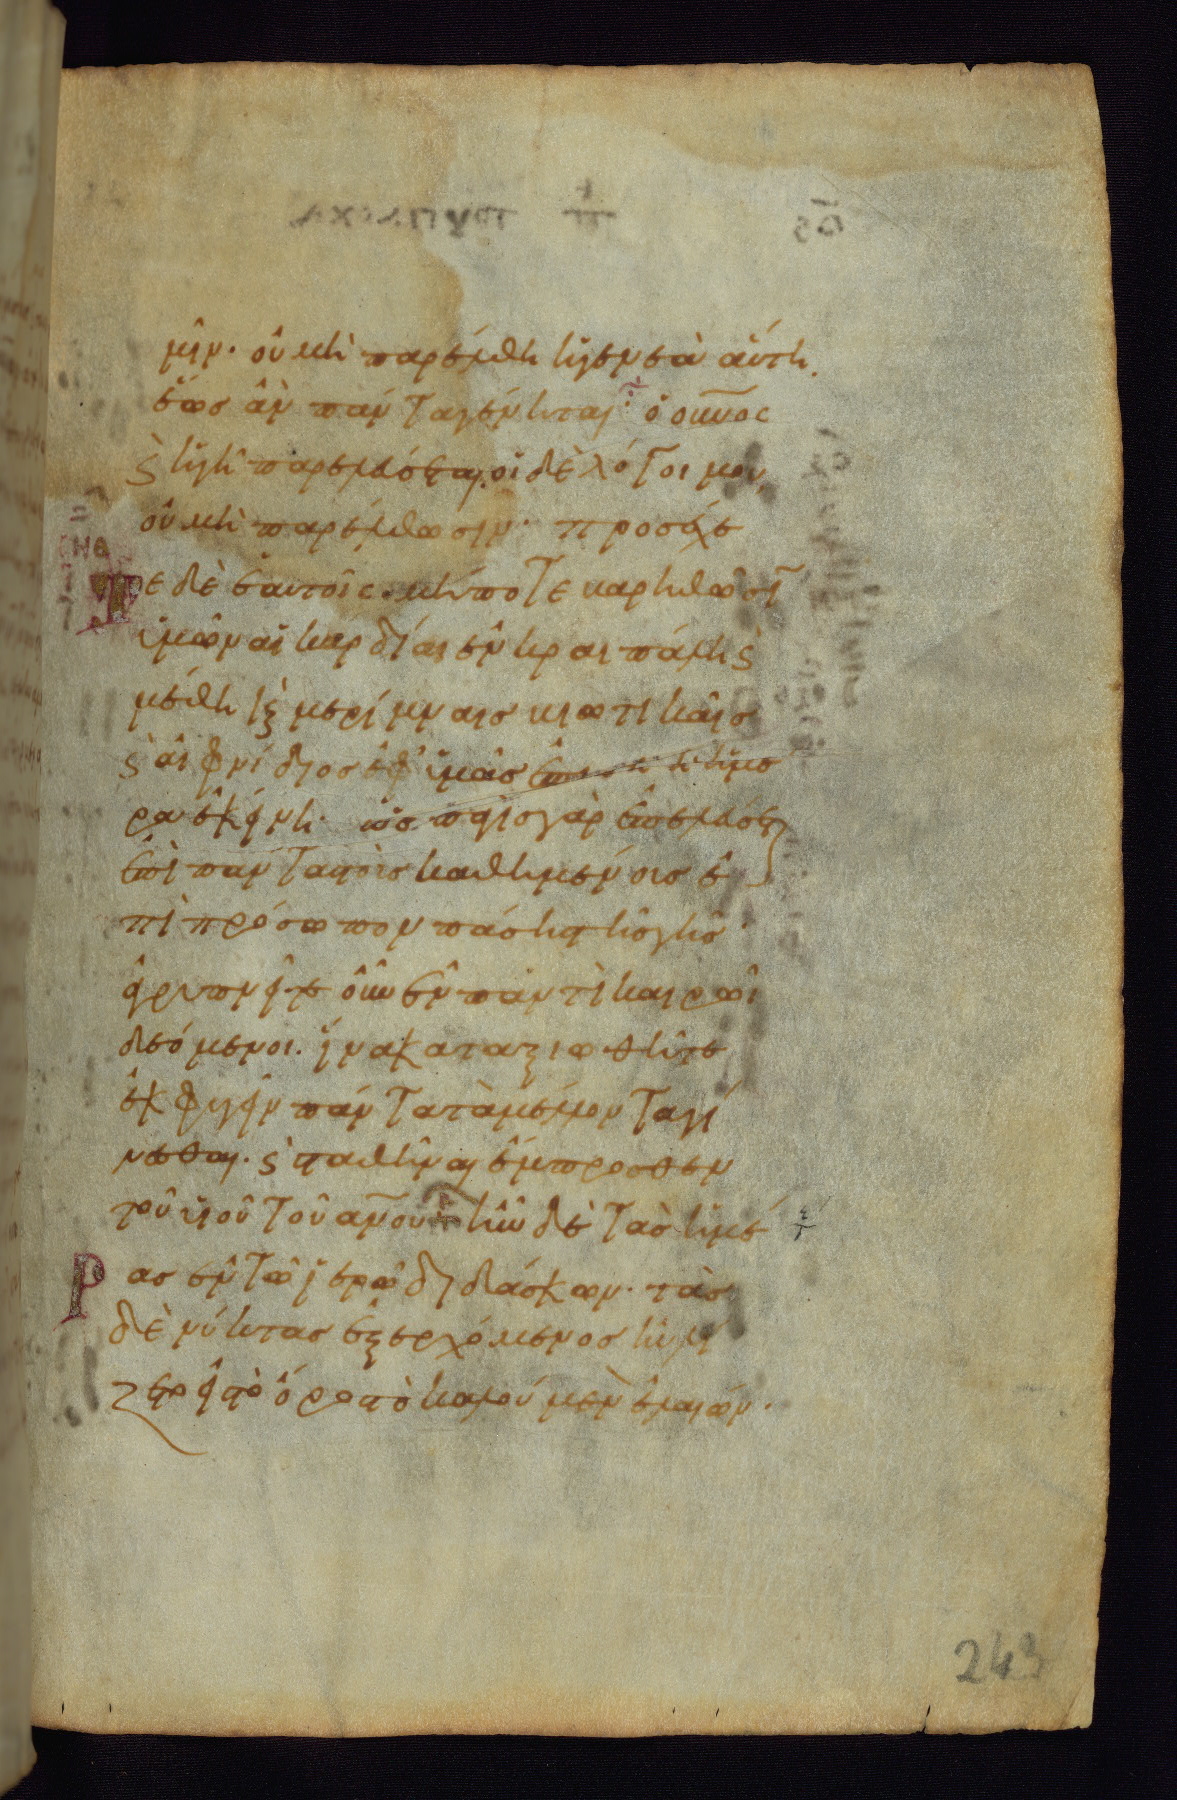 μῖν· οὐ μὴ παρέλθη ἡ γενεὰ αὕτη.
ἕως ἂν πάντα γένηται· ὁ οὐνος
ϛ ἡ γῆ παρελεύσεται. οἱ δὲ λόγοι μου,
οὐ μὴ παρέλθωσιν· προσέχε
τε δὲ ἑαυτοῖς. μήποτε βαρηθῶσῖ
ὑμῶν αἱ καρδίαι ἐν κραιπάλη ϛ
μέθη ϗ μερίμναις βιωτικαῖς
ϛ αἰφνίδιος ἐφ' ὑμᾶς ἐπιστῆ ἡ ἡμέ
ρα ἐκείνη· ὡς παγὶς γὰρ ἐπελεύσεται
ἐπὶ πάντας τοὺς καθημένους ἐ
πὶ πρόσωπον πάσης τῆς γῆς·
ἀγρυπνεῖτε οὖν ἐν παντὶ καιρῶι
δεόμενοι. ἵνα καταξιωθῆτε
ἐκφυγεῖν πάντα τὰ μέλλοντα γί
νεσθαι. ϛ σταθῆναι ἔμπροσθεν
τοῦ υἱοῦ τοῦ ανου· ἦν δὲ τὰς ἡμέ
ρας ἐν τῶ ἱερῶ διδάσκων· τὰς
δὲ νύκτας ἐξερχόμενος ηὐλί
ζετο εἰς τὸ ὄρος τὸ καλούμενον ἐλαιῶν·
243